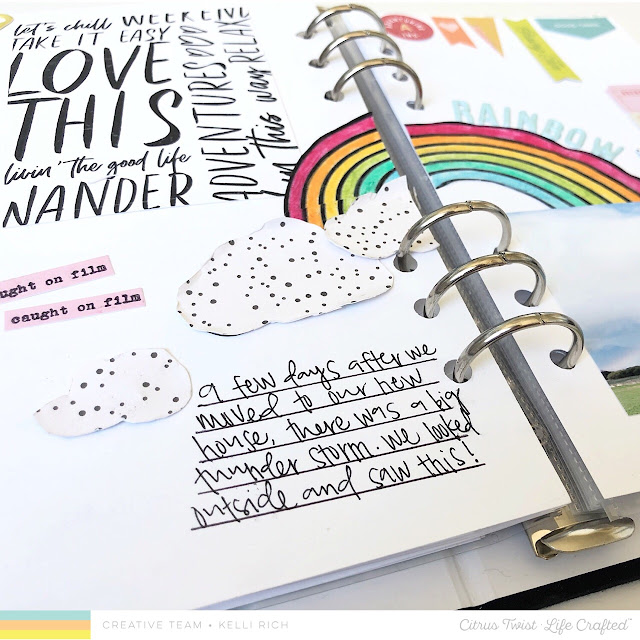 let's chill WEEKEND
TAKE IT EASY
LOVE
THIS
livin' the good life
WANDER
ADVENTURES
RELAX
in this way
RAINBOW
caught on film
a few days after we
moved to our new
house, there was a big
thunder storm. We looked
outside and saw this!
CREATIVE TEAM • KELLI RICH
Citrus Twist · Life Crafted™